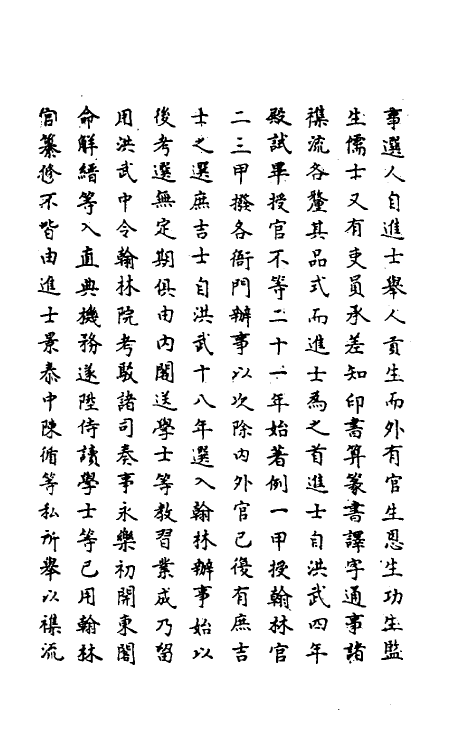 事選人自進士舉人貢生而外有官生恩生功生監
生儒士又有吏員承差知印書算篆書譯字通事諸
襍流各釐其品式而進士為之首進士自洪武四年
殿試畢授官不等二十一年始著例一甲授翰林官
二三甲撥各衙門辦事以次除內外官已後有庶吉
士之選庶吉士自洪武十八年選入翰林辦事始以
後考選無定期俱由內閣送學士等教習業成乃留
用洪武中令翰林院考駮諸司奏事永樂初開東閣
命解縉等入直典機務遂陞侍讀學士等已用翰林
官纂修不皆由進士景泰中陳循等私所舉以襍流